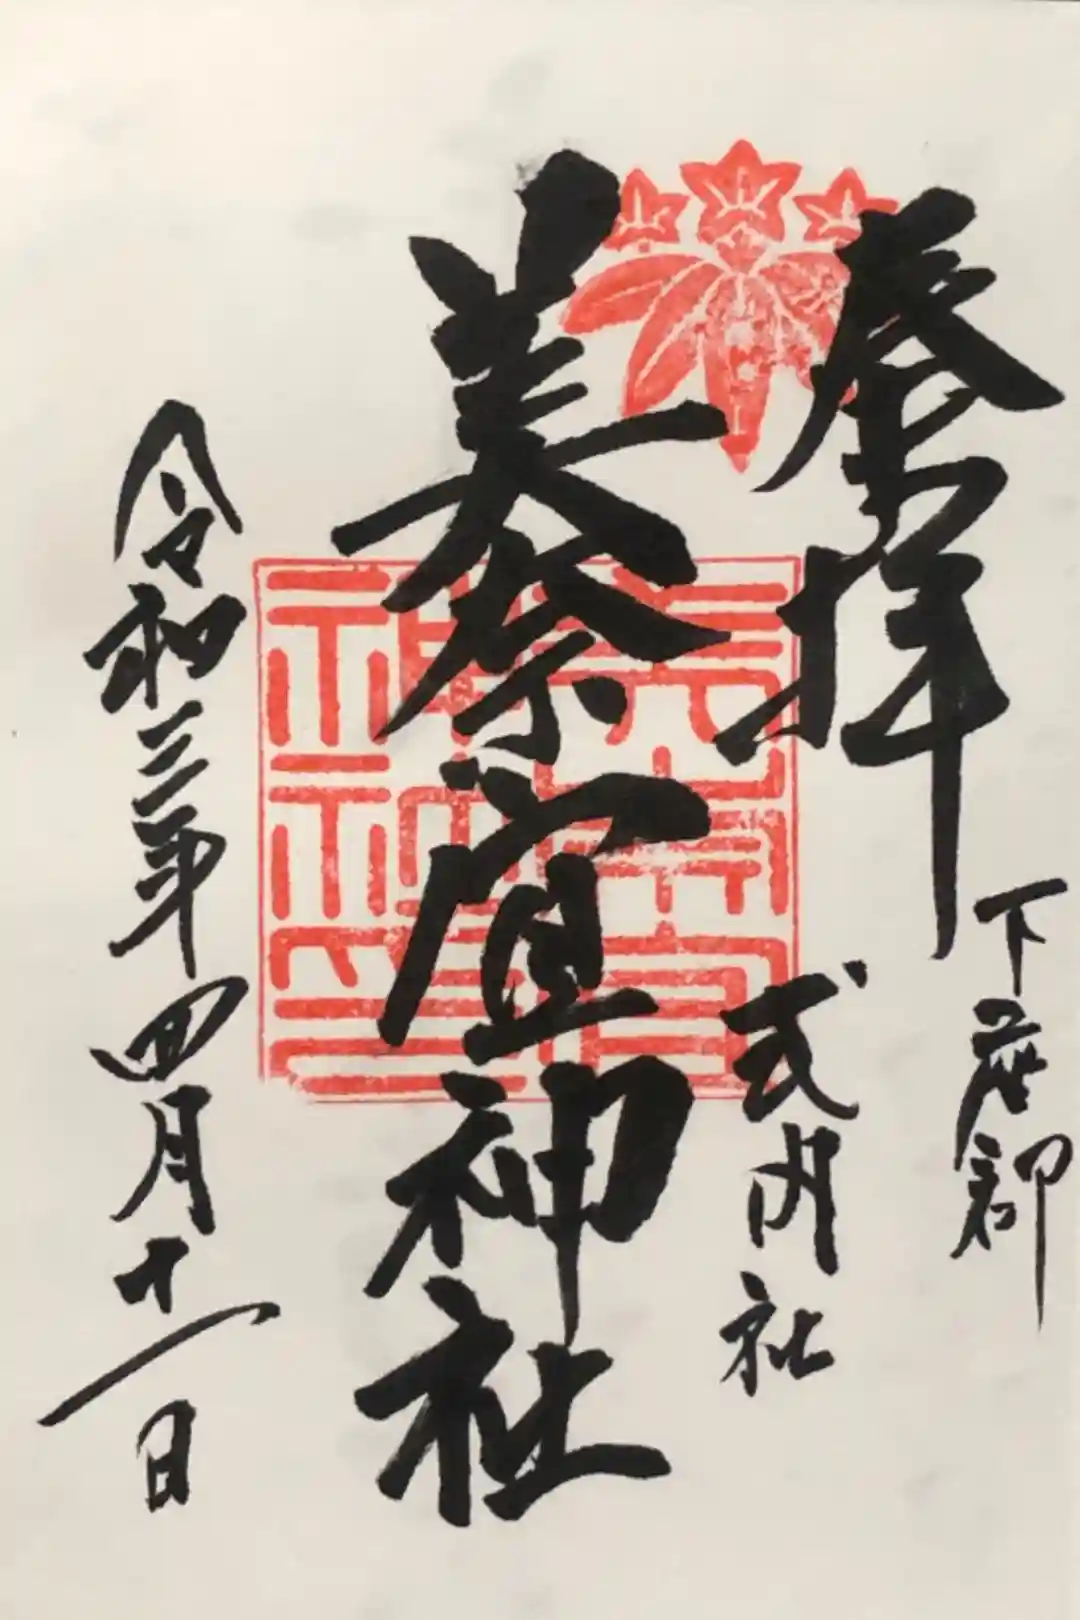 奉拝
下座郡
式内社
美奈宜神社
令和三年四月十一日
美奈宜
神社印